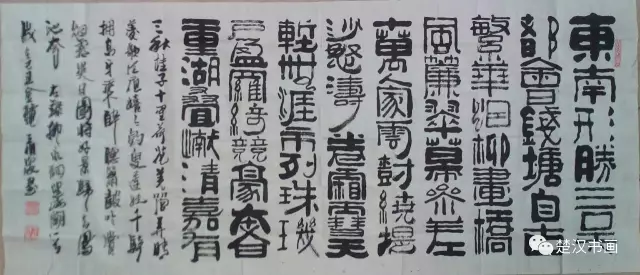 東南形勝三吳
都會錢塘自古
繁華烟柳畫橋
風簾翠幕參差
萬人家雲樹繞堤
沙怒濤卷霜雪天
塹無涯市列珠璣
戶盈羅綺競豪奢
重湖疊巘清嘉有
三秋桂子十里荷花羌管弄晴
菱歌泛夜嬉嬉釣叟蓮娃千騎
擁高牙乘醉聽簫鼓吟賞
煙霞異日圖將好景歸去鳳
池夸 右錄柳永詞
楚汉书画